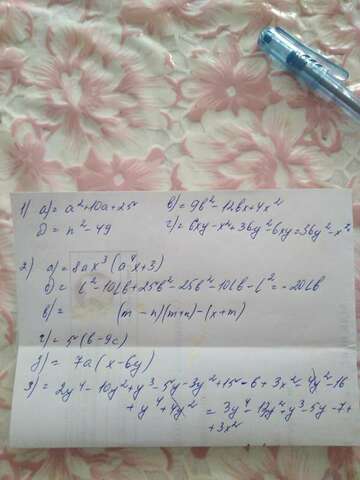 1) а)= a²+10a+25 в)= 9b²-12bx+4x²
б)= n²-49 г)= 6xy-x²+36y²-6xy=36y²-x²
2) а)= 8ax³(a⁴x+3)
б)= l²-10lb+25b²-25b²-10lb-l²=-20lb
в)= (m-n)(m+n)-(x+m)
г)= 5(b-9c)
д)= 7a(x-6y)
3)= 2y⁴-10y²+y³-5y-3y²+15-6+3x²-4y²-16
+y⁴+4y² = 3y⁴-13y²+y³-5y-7+
+3x²